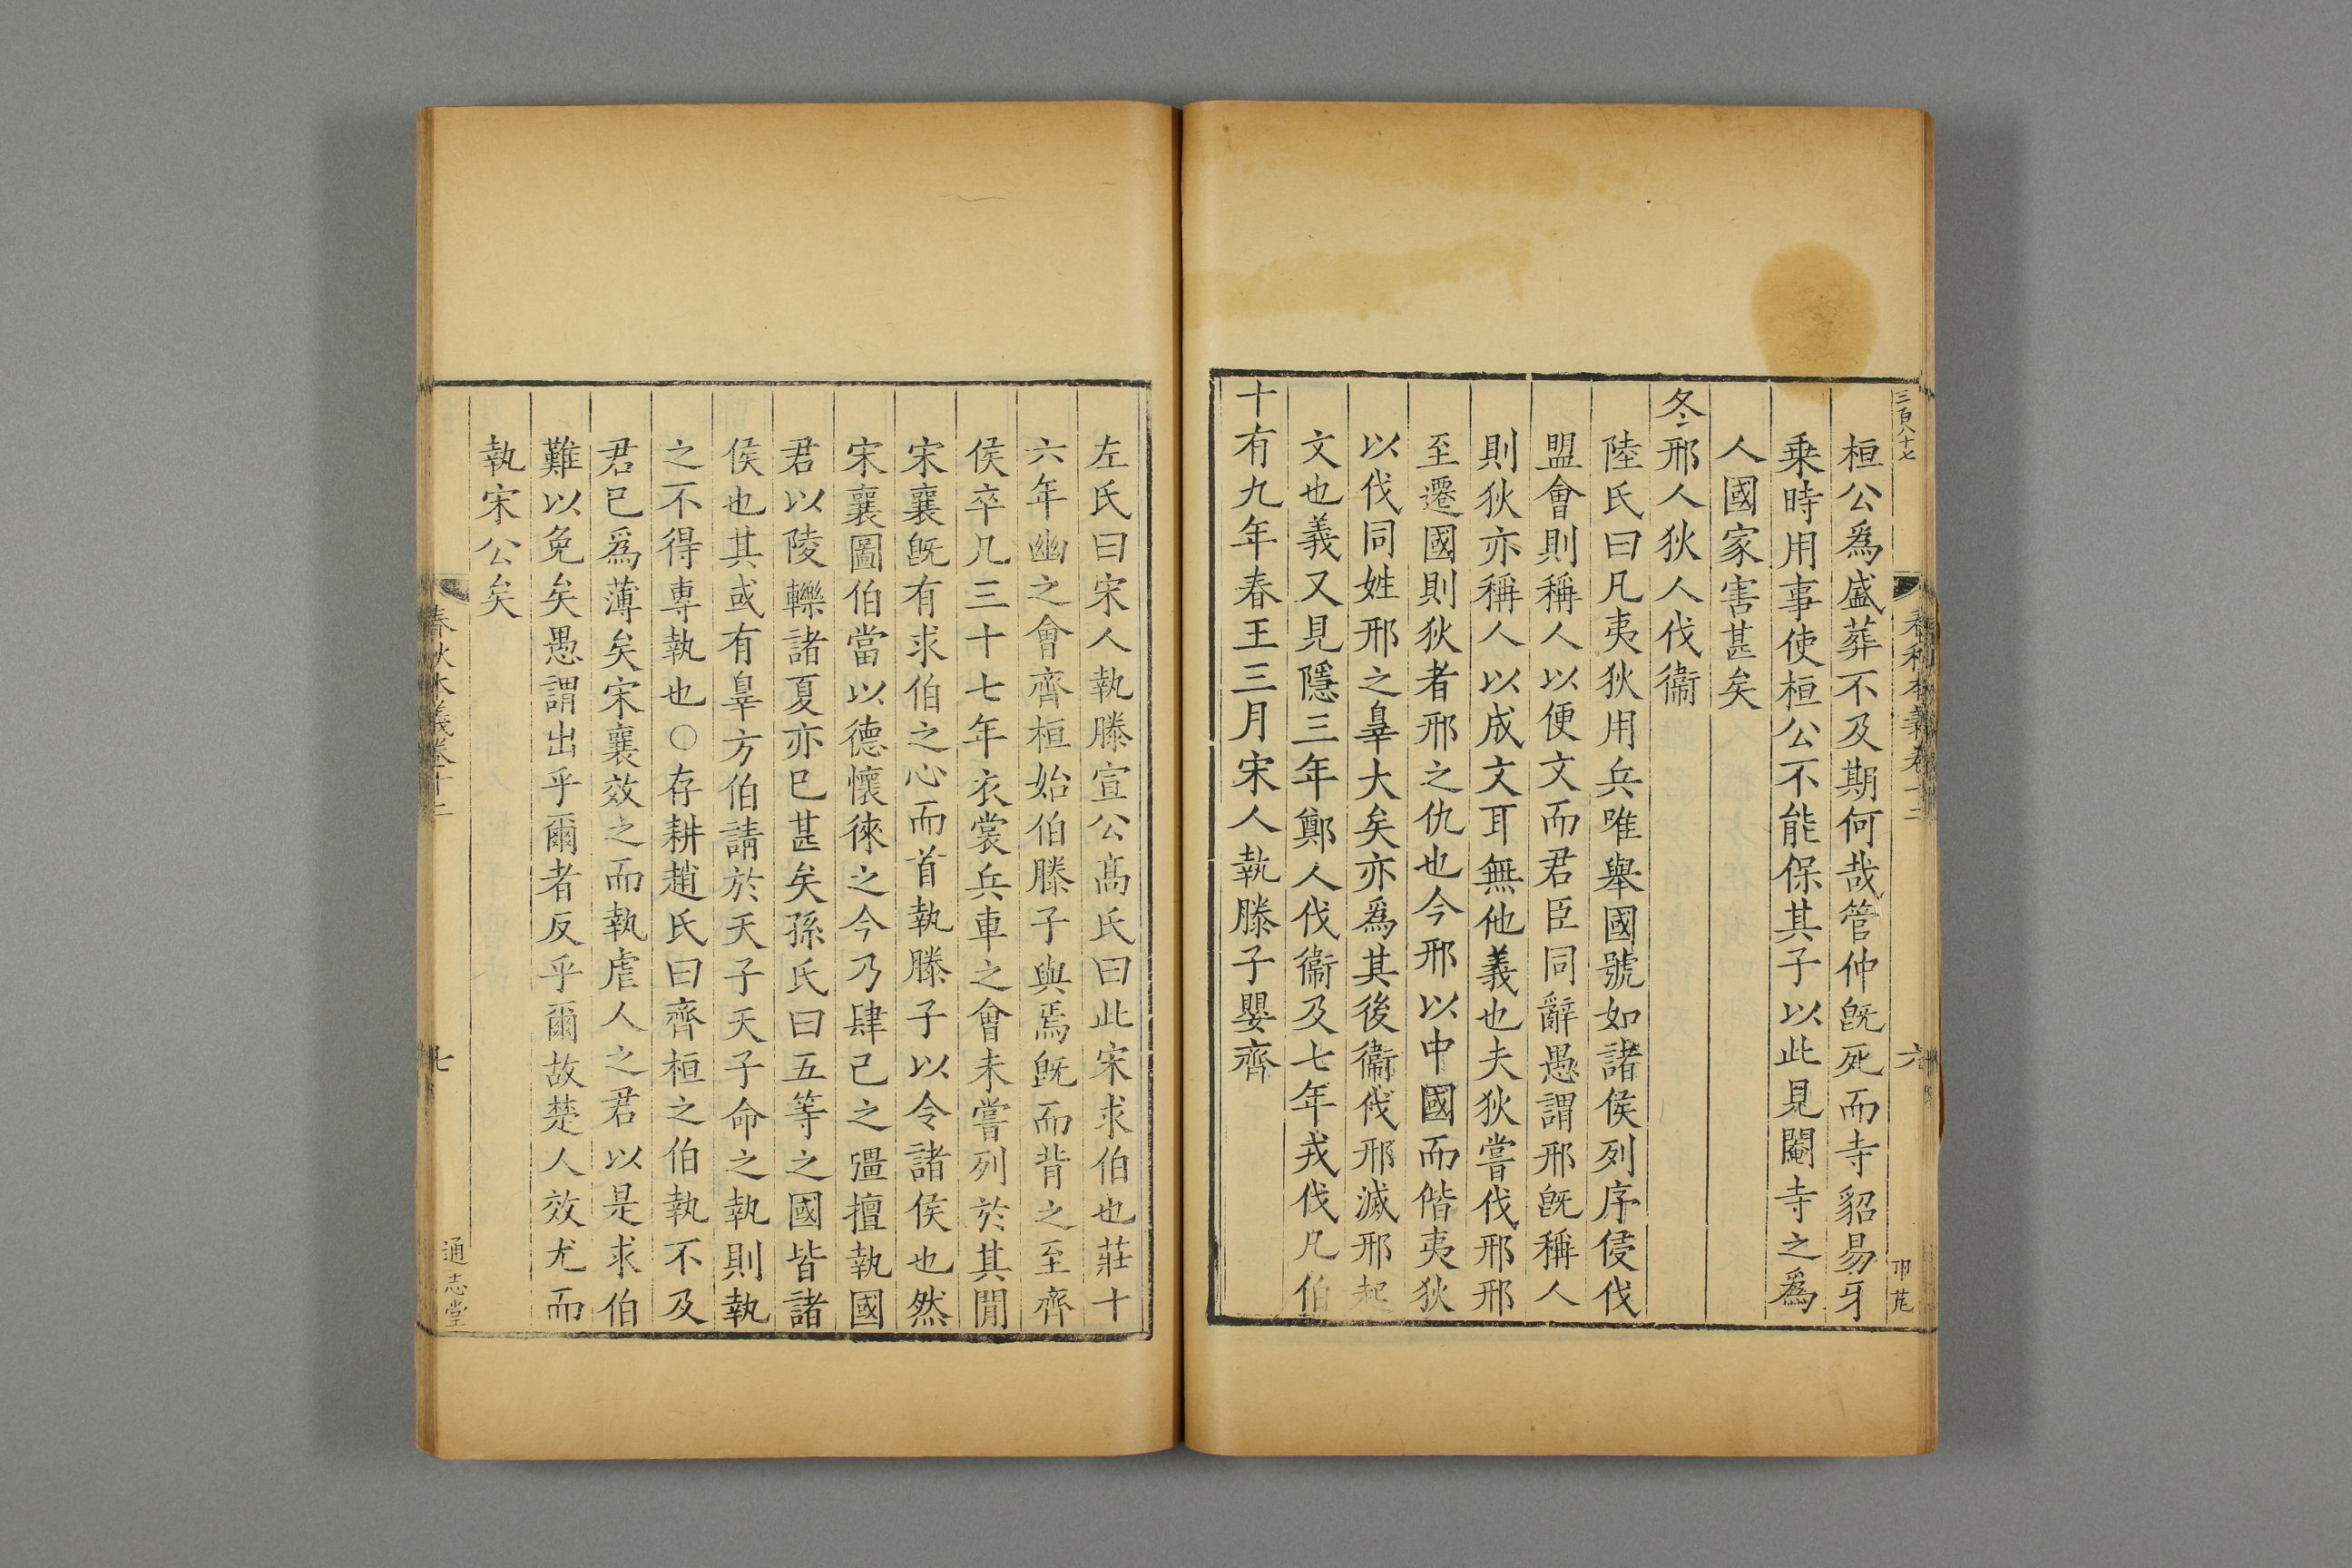 三百八十七
春秋本義卷十二
六
桓公爲盛葬不及期何哉管仲旣死而寺貂易牙
乗時用事使桓公不能保其子以此見閹寺之爲
人國家害甚矣
冬邢人狄人伐衞
陸氏曰凡夷狄用兵唯舉國號如諸侯列序侵伐
盟會則稱人以便文而君臣同辭愚謂邢旣稱人
則狄亦稱人以成文耳無他義也夫狄嘗伐邢邢
至遷國則狄者邢之仇也今邢以中國而偕夷狄
以伐同姓邢之辠大矣亦爲其後衞伐邢滅邢起
文也義又見隱三年鄭人伐衞及七年戎伐凡伯
十有九年春王三月宋人執滕子嬰齊
左氏曰宋人執滕宣公髙氏曰此宋求伯也莊十
六年幽之會齊桓始伯滕子與焉旣而背之至齊
侯卒凡三十七年衣裳兵車之會未嘗列於其閒
宋襄旣有求伯之心而首執滕子以令諸侯也然
宋襄圖伯當以德懷徠之今乃肆己之彊擅執國
君以陵轢諸夏亦巳甚矣孫氏曰五等之國皆諸
侯也其或有辠方伯請於天子天子命之執則執
之不得專執也○存耕趙氏曰齊桓之伯執不及
君巳爲薄矣宋襄效之而執虐人之君以是求伯
難以免矣愚謂出乎爾者反乎爾故楚人效尤而
執宋公矣
春秋本義卷十二
七
通志堂